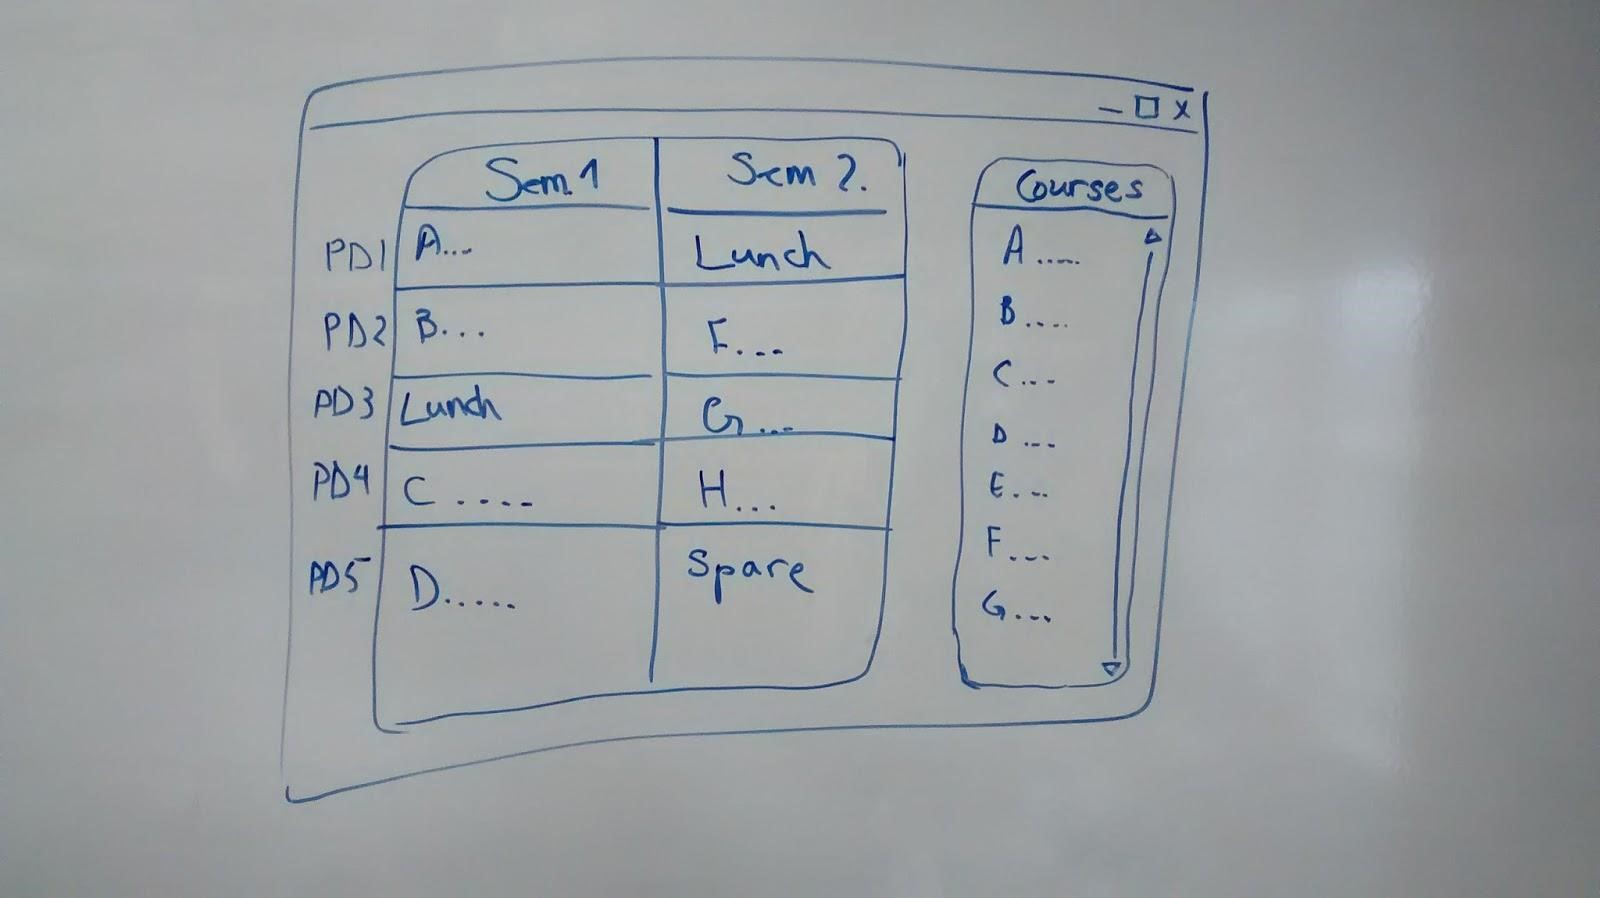 Sem.1 Sem 2.
PD1 A... Lunch
PD2 B... F...
PD3 Lunch G...
PD4 C .... H...
PD5 D..... Spare
Courses
A .....
B ....
C ...
D ...
E...
F...
G...